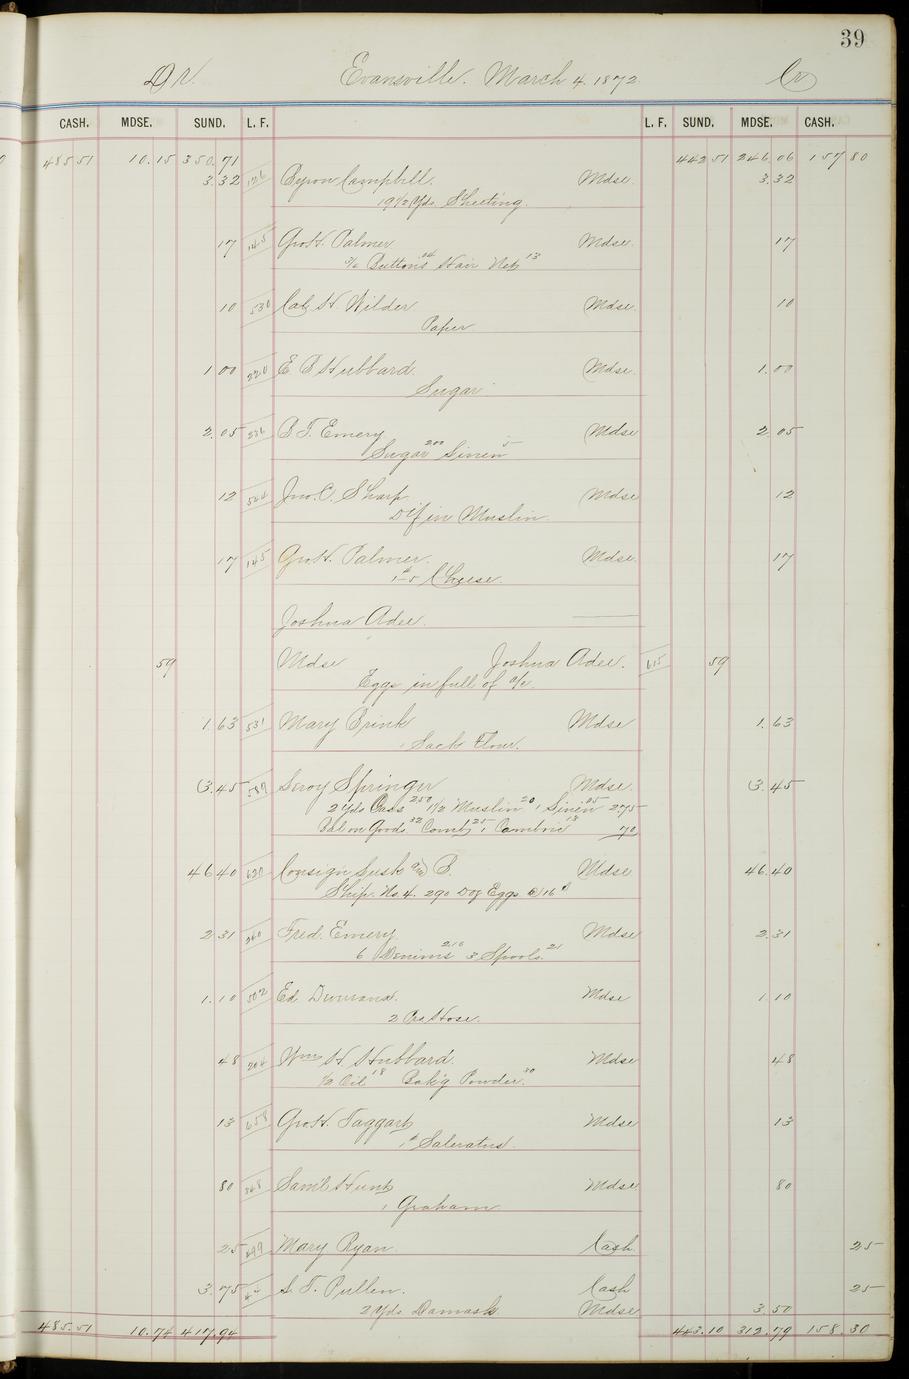 39
Dr. Evansville. March 4. 1872. Cr
CASH. MDSE. SUND. L. F. L. F. SUND. MDSE. CASH.
485 51 10.15 350.71 442 51 246.06 157 80
3.32 126 Byron Campbell. Mdse. 3.32
19 1/2 Yds. Sheeting.
17 145 Geo H. Palmer Mdse. 17
Buttons 04 Hair Net 13
10 530 H. Wilder Mdse. 10
Paper
1 00 220 E B Hubbard. Mdse. 1.00
Sugar
2.05 236 B. T. Emery Mdse 2 05
Sugar 200 Linen 5
12 544 Jno. C. Sharp Mdse 12
Dif in Muslin.
17 145 Geo H. Palmer. Mdse. 17
1# Cheese.
Joshua Adee.
59 Mdse Joshua Adee. 615 59
Eggs in full of a/c
1.63 531 Mary Brink Mdse 1.63
1 Sack Flour.
3.45 589 Leroy Springer Mdse. 3.45
2 Yds Cass 250 1 1/2 Muslin 20 1 Linen 05 275
Bal on Goods 32 Comb 25 1 Cambric 13 70
46 40 620 Consign Lusk & B. Mdse 46.40
Ship. No. 4. 290 Doz Eggs @ 16¢
2 31 260 Fred. Emery. Mdse 2.31
6 Denims 210 3 Spools 21
1.10 502 Ed. Mdse 1.10
2 Prs Hose.
48 204 Wm H. Hubbard. Mdse 48
1/2 Oil 18 Bak'g Powder. 30
13 658 Geo H. Taggart Mdse 13
1# Saleratus.
80 Saml Hunt Mdse 80
1 Graham
25 499 Mary Ryan. Cash. 25
3.75 S. T. Pullen. Cash 25
2 Yds Damask Mdse 3.50
485.51 10.74 417.94 443.10 312.79 158.30